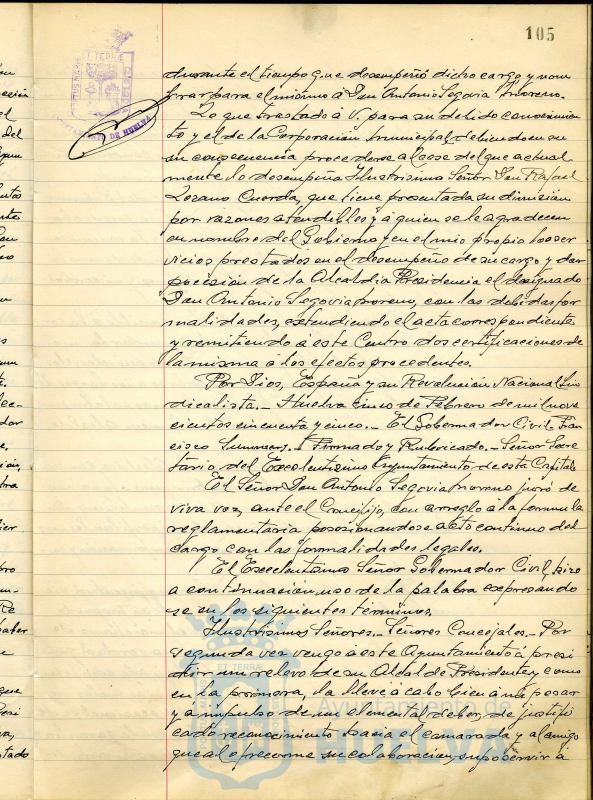 105
durante el tiempo que desempeñó dicho cargo y nom
brar para el mismo á Don Antonio Segovia Moreno.
Lo que traslado á V. para su debido conocimien
to y el de la Corporación Municipal, debiendo en su
su consecuencia procederse al cese del que actual
mente lo desempeña Ilustrisimo Señor Don Rafael
Lozano Cuerda, que tiene presentada su dimisión
por razones atendibles y á quien se le agradecen
en nombre del Gobierno y en el mio propio los ser
vicios prestados en el desempeño de su cargo y dar
posesión de la Alcaldia Presidencia el designado
Don Antonio Segovia Moreno, con las debidas for
malidades, extendiendo el acta correspondiente
y remitiendo á este Centro dos certificaciones de
la misma á los efectos procedentes.
Por Dios, España y su Revolución Nacional Sin
dicalista._ Huelva cinco de Febrero de mil nove
cientos cincuenta y cinco._ El Gobernador Civil. Fran
cisco Summers._ Firmado y Rubricado._ Señor Secre
tario del Excelentisimo Ayuntamiento de esta Capital.
El Señor Don Antonio Segovia Moreno juró de
viva voz, ante el Crucifijo, con arreglo á la formula
reglamentaria posesionandose acto continuo del
cargo con las formalidades legales.
El Excelentisimo Señor Gobernador Civil, hizo
a continuación, uso de la palabra expresando
se en los siguientes términos.
Ilustrisimos Señores._ Señores Concejales._ Por
segunda vez vengo á este Ayuntamiento á presi
dir un relevo de su Alcalde Presidente y como
en la primera, la llevé á cabo bien á mi pesar
y a impulso de un elemental deber, de justifi
cado reconocimiento hacia el camarada y al amigo
que al ofrecerme su colaboración, supo servir á
ET TERRAE
DE HUELVA
Ayuntamiento de
HUELVA